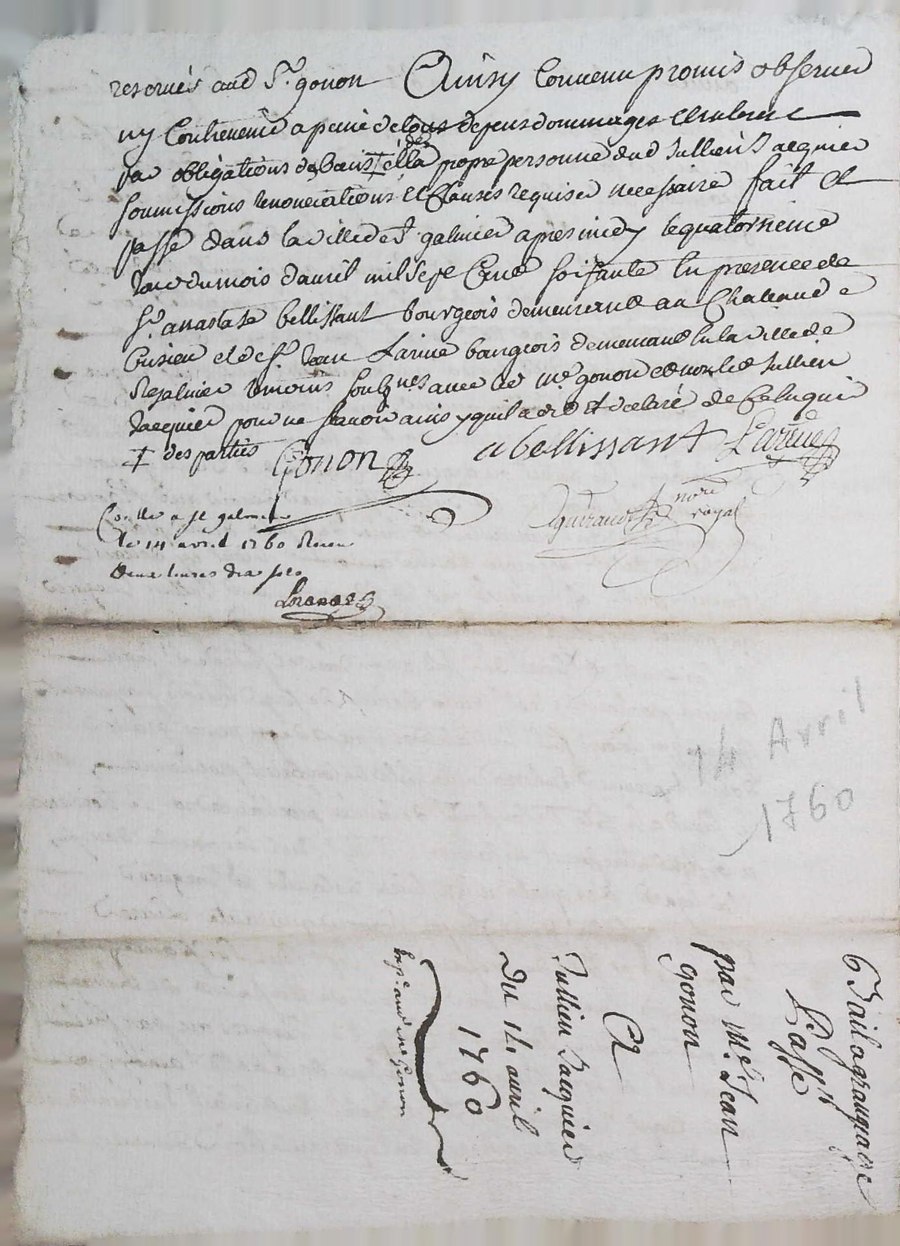 reservés aud Sr. gonon Ainsy Convenu promis observer
ny Contrevenir a peine de tous depens dommages et interest
par obligations de biens ‡ et de la propre personne dud Jullien Jacquier
soumissions renonciations et Clauses requises necessaire fait et
passé dans la ville de St galmier apres midy le quatorzieme
Jour du mois davril mil sept Cent soixante En presence de
Sr. anastase bellissant bourgeois demeurant au Chateau de
Cuzieu et de Sr Jean Larive bourgeois demeurant En la ville de
St galmier temoins soubznes avec led me. gonon et non led Jullien
Jacquier pour ne scavoir ainsy quil a dit et declaré de Ce Enquis
‡ des parties Gonon abellissant Larive
nore
royal
Conllé a St galmier
le 14 avril 1760 Recu
deux livres dix sols
14 Avril
1760
Bail a grangeage
Passé
par Me. Jean
gonon
A
Jullien Jacquier
Du 14 avril
1760
Expn. aud me Gonon